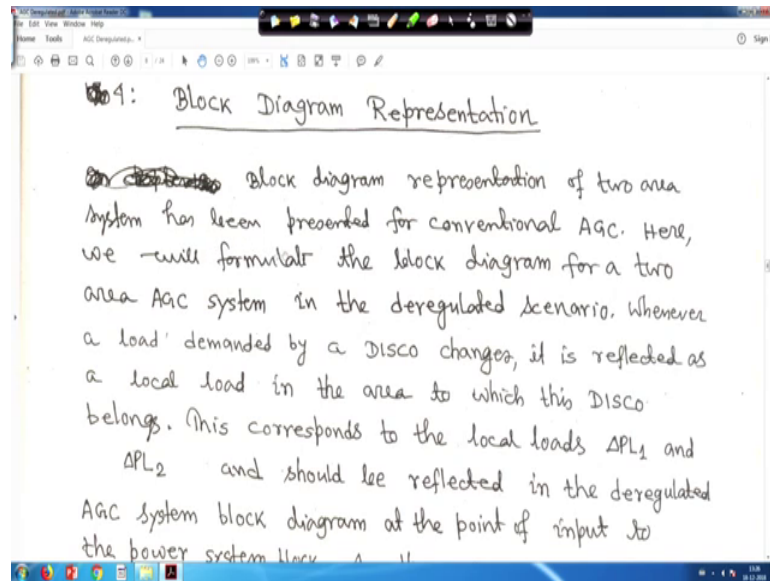 AGC Deregulated.pdf - Adobe Acrobat Reader DC
File Edit View Window Help
Home Tools AGC Deregulated.p... × Sign
4: Block Diagram Representation
Block diagram representation of two area
system has been presented for conventional AGC. Here,
we will formulate the block diagram for a two
area AGC system in the deregulated scenario. Whenever
a load demanded by a DISCO changes, it is reflected as
a local load in the area to which this DISCO
belongs. This corresponds to the local loads ΔPL1 and
ΔPL2 and should be reflected in the deregulated
AGC system block diagram at the point of input to
the power system block.